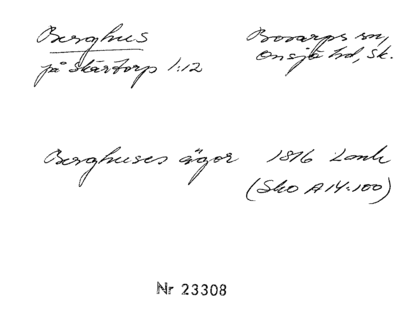 Berghus
Bosarps sn,
på Skårtorp 1:12
Onsjö hd, Sk.
Berghuses ägor 1876 Lantm
(Sko A14:100)
Nr 23308